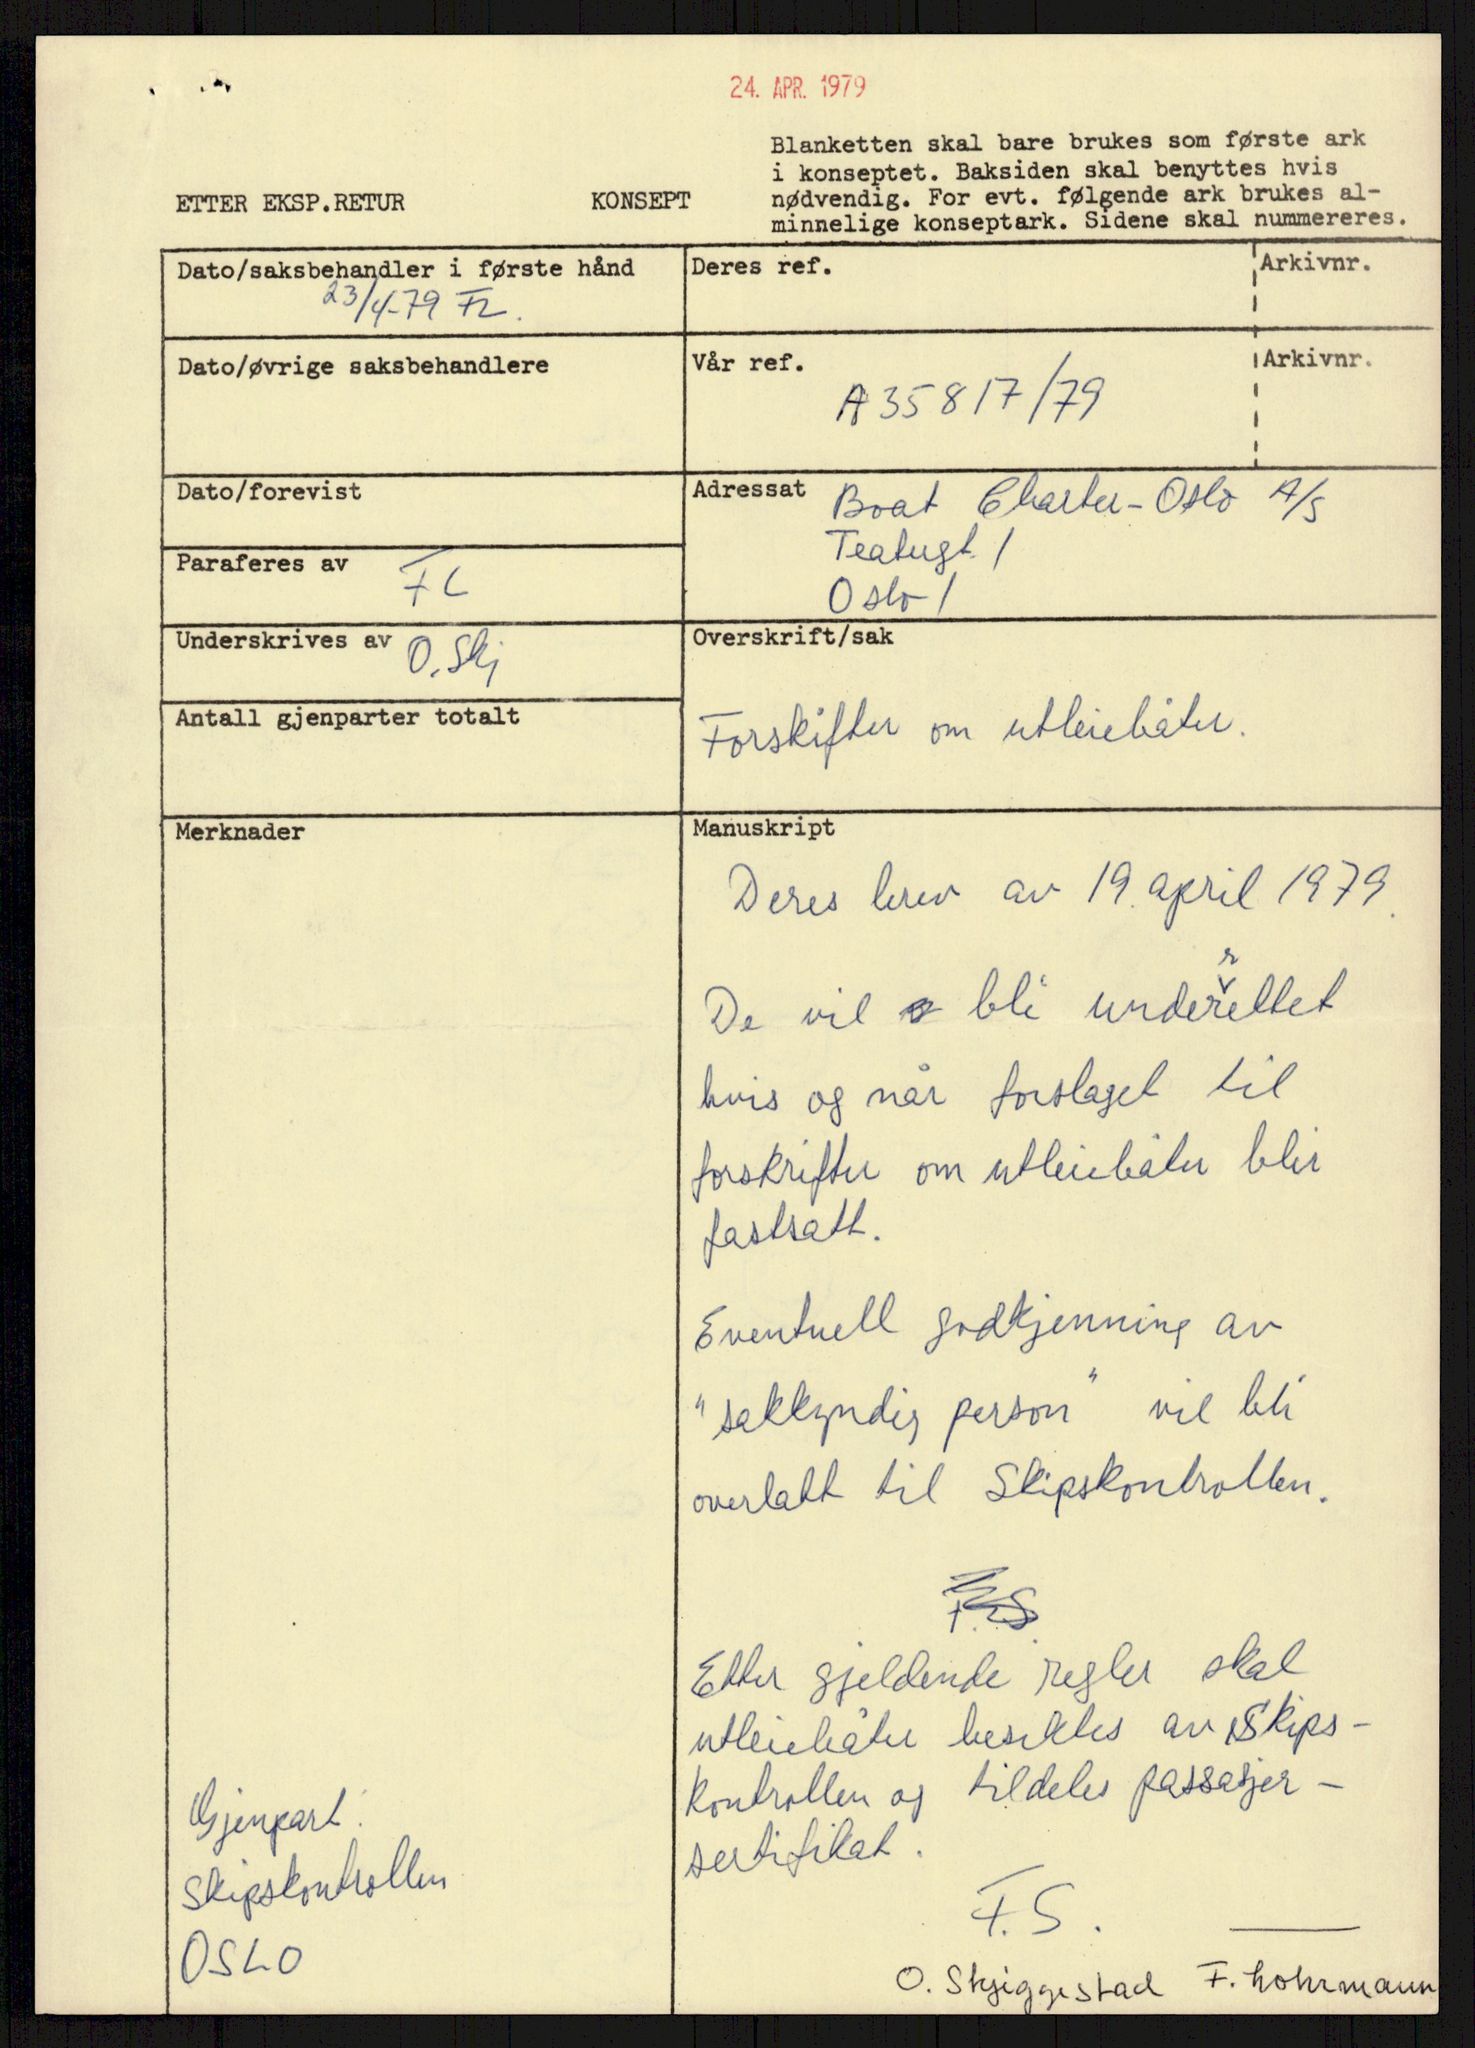 24. APR. 1979
Blanketten skal bare brukes som første ark
i konseptet. Baksiden skal benyttes hvis
nødvendig. For evt. følgende ark brukes al-
minnelige konseptark. Sidene skal nummereres.
ETTER EKSP.RETUR
KONSEPT
Dato/saksbehandler i første hånd
23/4-79 FL.
Deres ref.
Arkivnr.
Dato/øvrige saksbehandlere
Vår ref.
Arkivnr.
A 35817/79
Dato/forevist
Adressat
Boat Charter-Oslo A/S
Teatergt. 1
Oslo 1
Paraferes av
FL
Underskrives av
O. Skj
Overskrift/sak
Forskifter om utleiebåter.
Antall gjenparter totalt
Merknader
Manuskript
Deres brev av 19. april 1979.
De vil bli underrettet
hvis og når forslaget til
forskrifter om utleiebåter blir
fastsatt.
Eventuell godkjenning av
"sakkyndig person" vil bli
overlatt til Skipskontrollen.
F.S.
Etter gjeldende regler skal
utleiebåter besiktes av Skips-
kontrollen og tildeles passasjer-
sertifikat.
F.S.
O. Skjiggestad F. Lohrmann
Gjenpart:
Skipskontrollen
OSLO